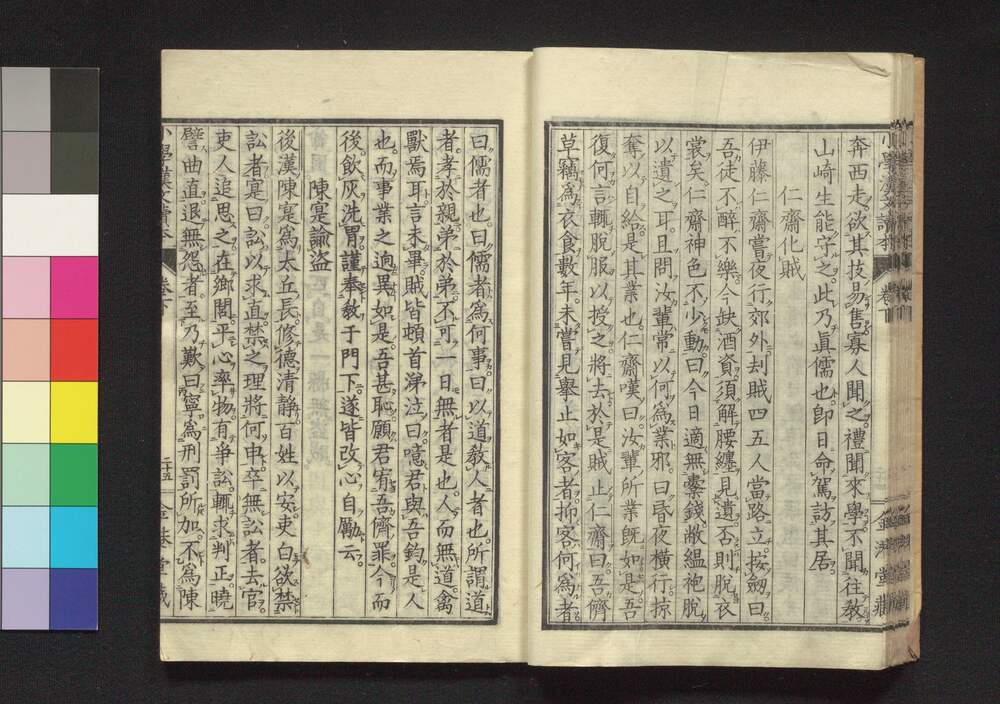 奔西走欲其技易售寡人聞之禮聞來學不聞往敎
山崎生能守之此乃眞儒也卽日命駕訪其居
仁齋化賊
伊藤仁齋嘗夜行郊外刦賊四五人當路立按劒曰
吾徒不醉不樂今缺酒資須解腰纏見遺否則脫衣
裳矣仁齋神色不少動曰今日適無橐錢敝縕袍脫
以遺之耳且問汝輩常以何爲業邪曰昏夜橫行掠
奪以自給是其業也仁齋嘆曰汝輩所業旣如是吾
復何言輒脫服以授之將去於是賊止仁齋曰吾儕
草竊爲衣食數年未嘗見擧止如客者抑客何爲者
曰儒者也曰儒者爲何事曰以道敎人者也所謂道
者孝於親弟於弟不可一日無者是也人而無道禽
獸焉耳言未畢賊皆頓首涕泣曰噫君與吾鈞是人
也而事業之逈異如是吾甚恥願君宥吾儕罪今而
後飮灰洗胃謹奉敎于門下遂皆改心自勵云
陳寔諭盜
後漢陳寔爲太丘長修德清静百姓以安吏白欲禁
訟者寔曰訟以求直禁之理將何申卒無訟者去官
吏人追思之在鄉閭平心率物有爭訟輒求判正曉
譬曲直退無怨者至乃歎曰寧爲刑罰所加不爲陳
小學漢文讀本 卷下 二十五